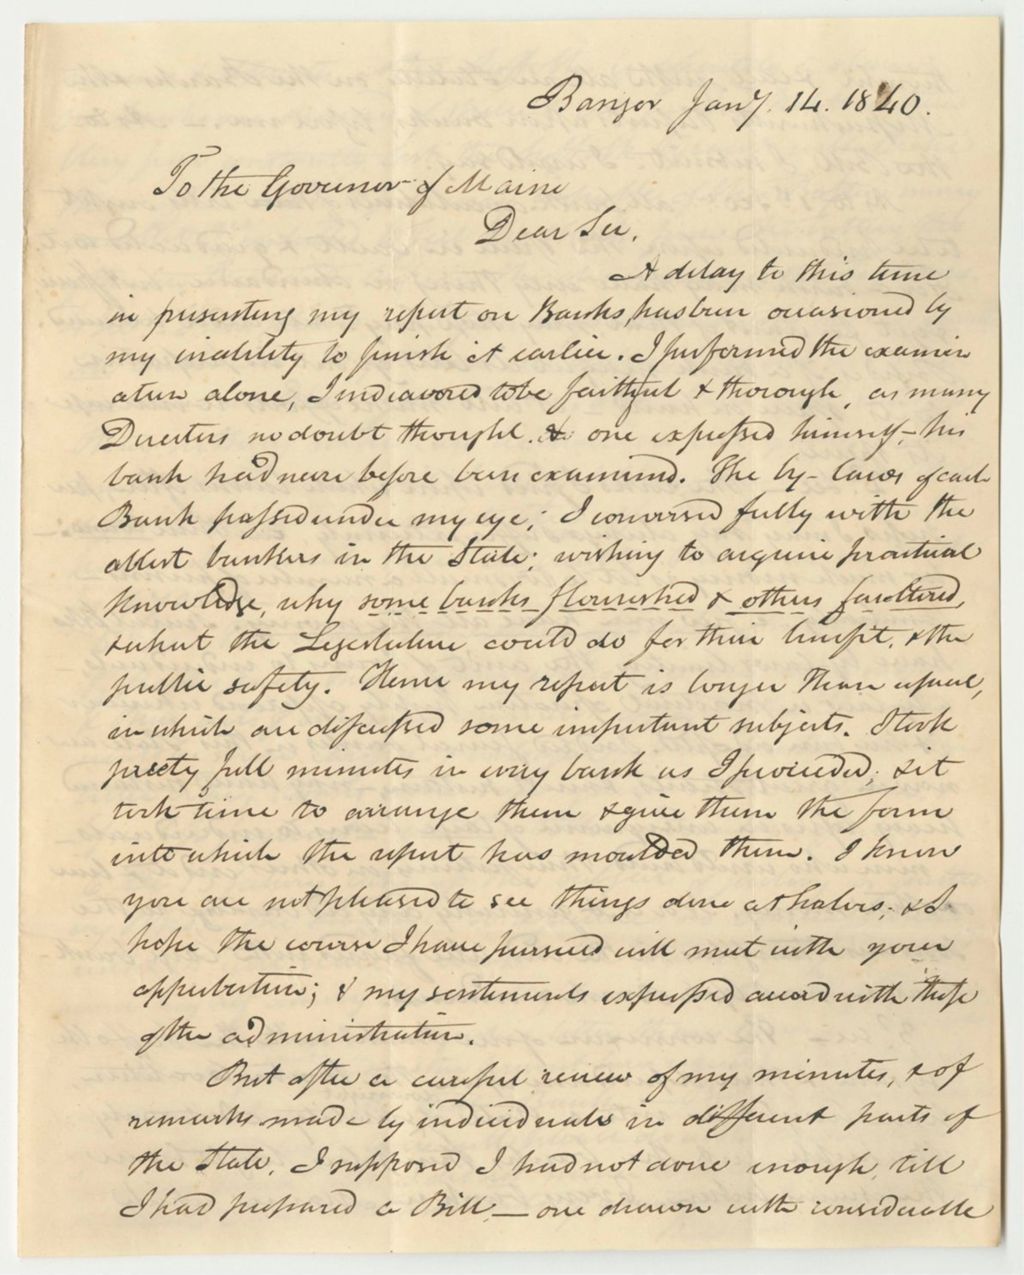 Bangor Jany. 14. 1840.
To the Governor of Maine
Dear Sir,
A delay to this time
in presenting my report on Banks, has been occasioned by
my inability to finish it earlier. I performed the examin
ation alone, I endeavored to be faithful & thorough, as many
Directors no doubt thought. & one expressed himself – his
bank had never before been examined. The by-laws of each
Bank passed under my eye; I conversed fully with the
ablest bankers in the State; wishing to acquire practical
knowledge, why some banks flourished & others faultered,
& what the Legislature could do for their benefit, & the
public safety. Hence my report is longer than usual,
in which are discussed some important subjects. I took
pretty full minutes in every bank as I proceeded; & it
took time to arrange them & give them the form
into which the report has moulded them. I know
you are not pleased to see things done at halves; & I
hope the course I have pursued will meet with your
approbation; & my sentiments expressed accord with those
of the administration.
But after a careful review of my minutes, & of
remarks made by individuals in different parts of
the State, I supposed I had not done enough, till
I had prepared a Bill, – one drawn with considerable